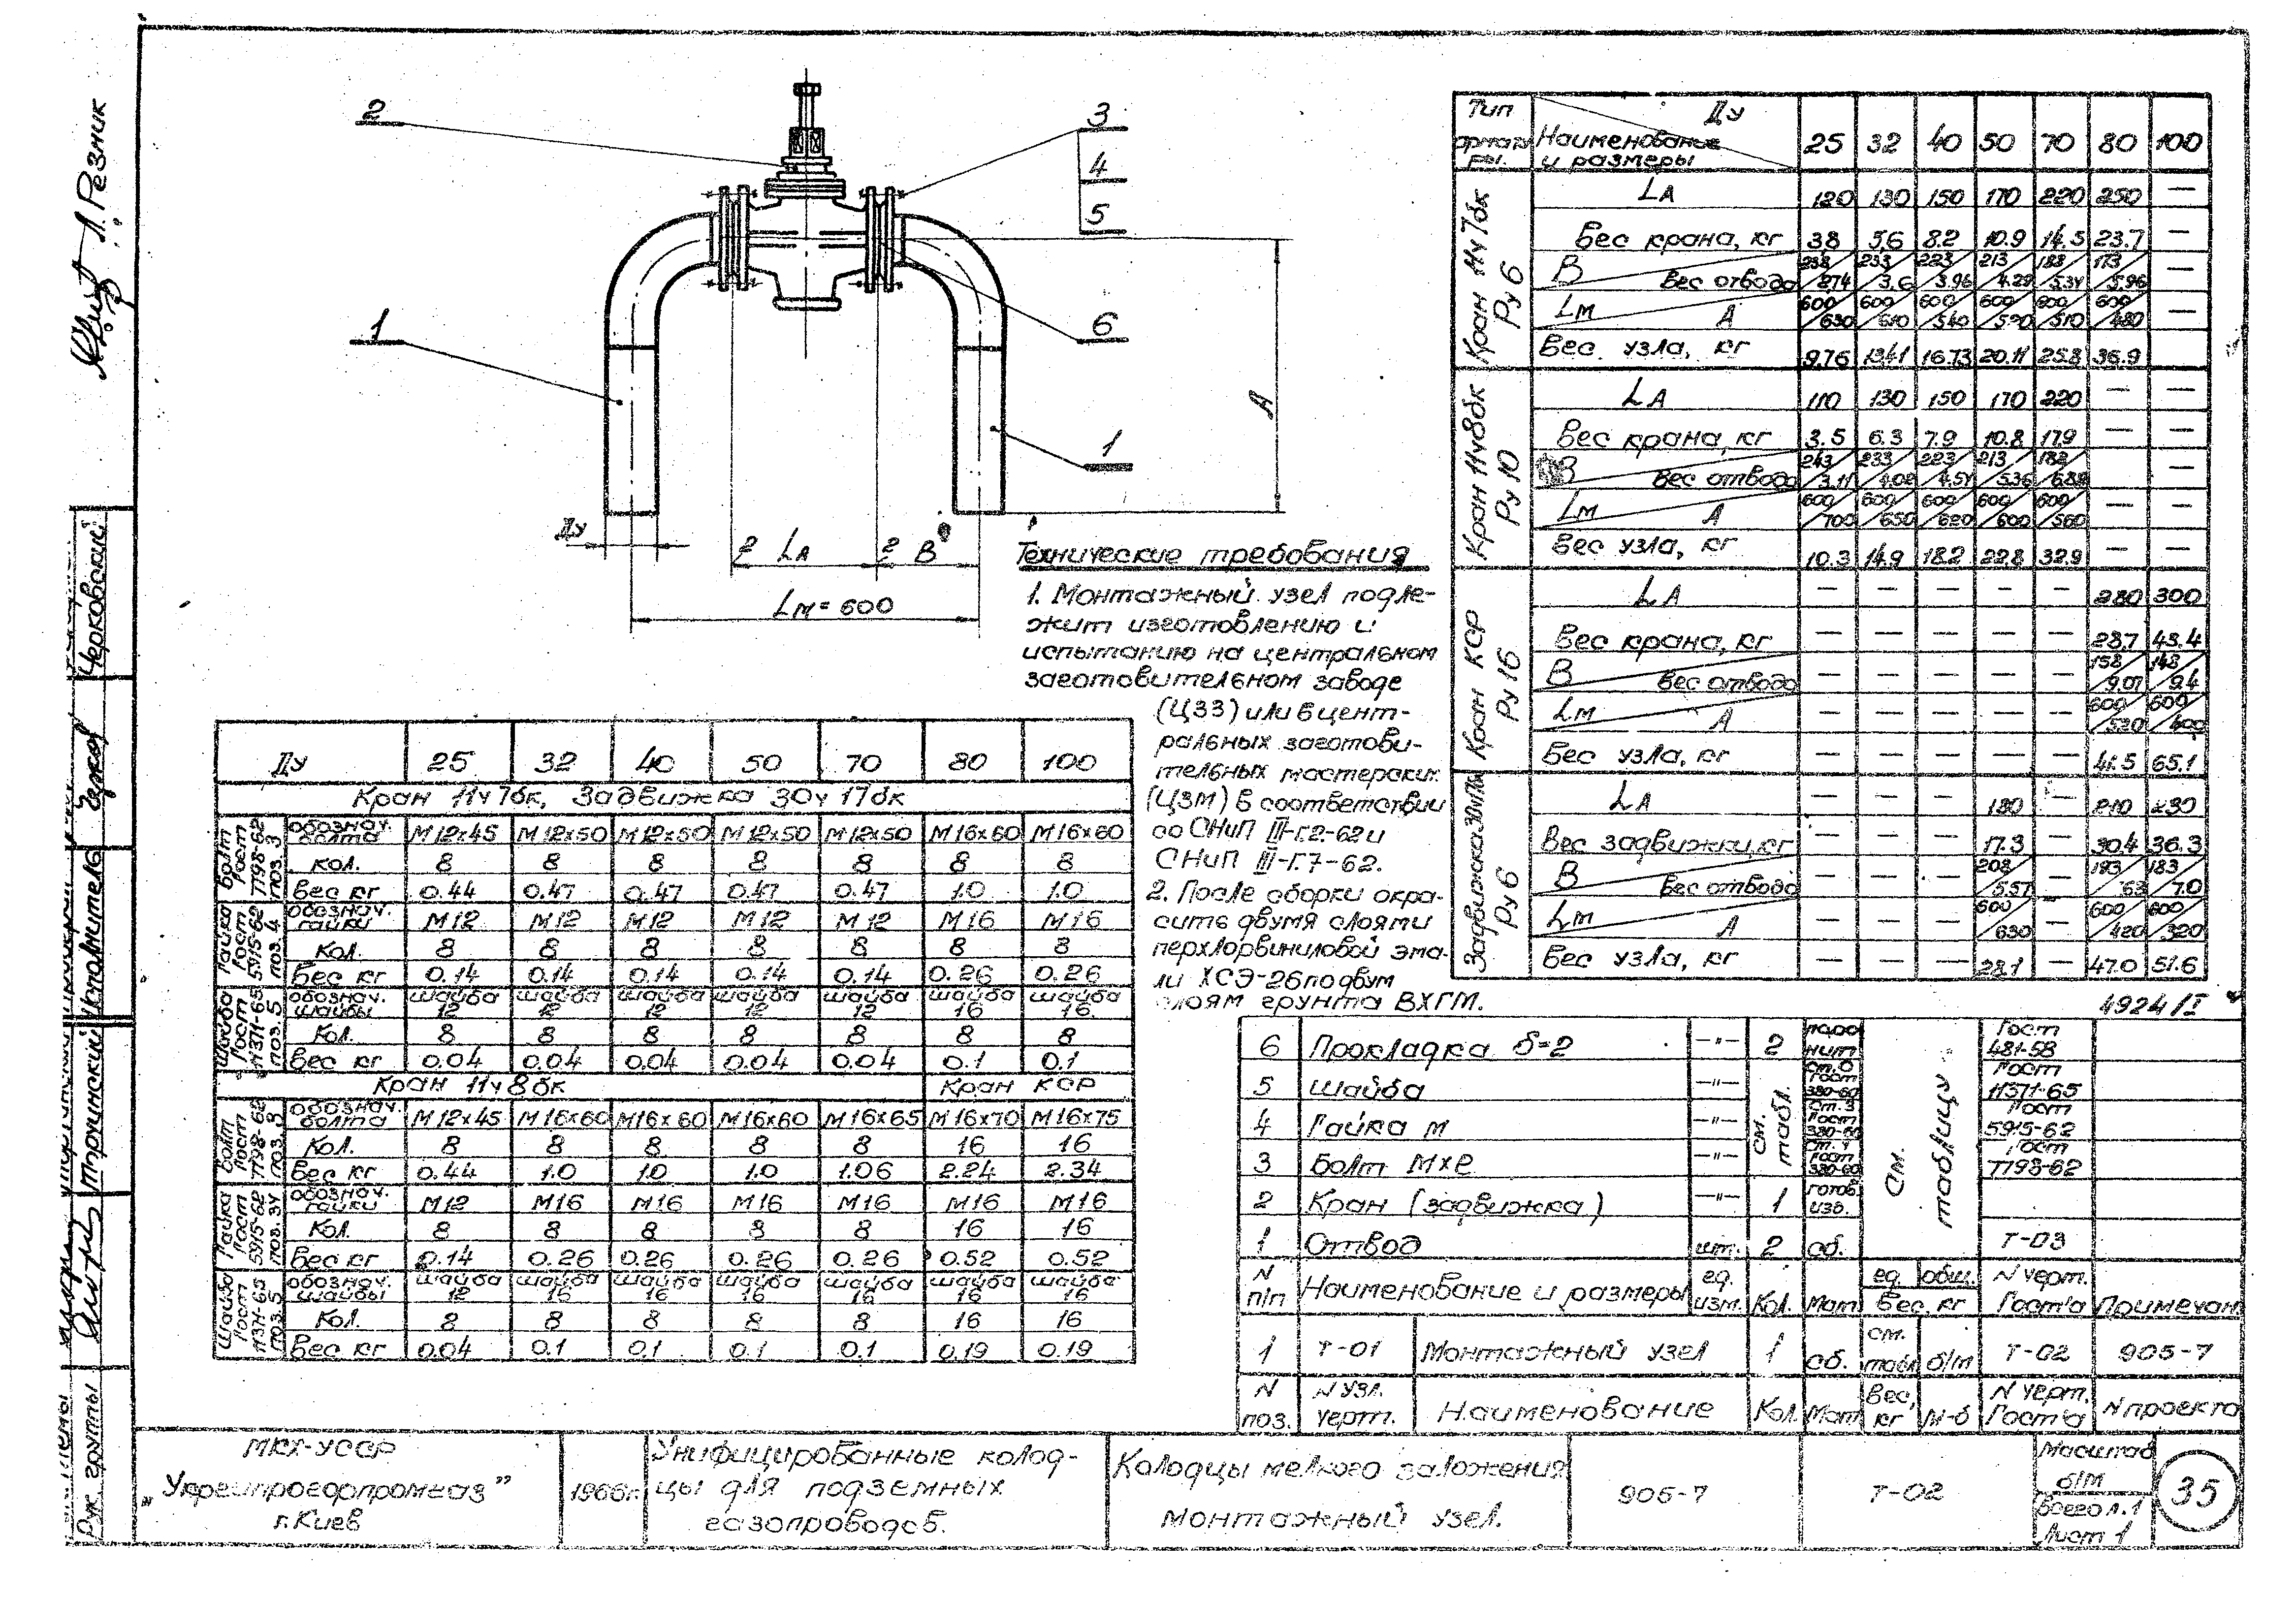 2
3
4
5
1
6
1
А
Ду
LА
В
Lм = 600
Технические требования
1. Монтажный узел подле-
жит изготовлению и
испытанию на центральном
заготовительном заводе
(ЦЗЗ) или в цент-
ральных заготови-
тельных мастерских
(ЦЗМ) в соответствии
со СНиП III-Г.2-62 и
СНиП III-Г.7-62.
2. После сборки окра-
сить двумя слоями
перхлорвиниловой эма-
ли ХСЭ-26 по двум
слоям грунта ВХГМ.
Тип арматуры. Ду Наименование и размеры 25 32 40 50 70 80 100
Кран 11ч7бк Ру 6
LА 120 130 150 170 220 250 —
Вес крана, кг 38 5,6 8.2 10.9 14.5 23.7 —
В / Вес отвода 238/2.74 233/3.6 223/3.96 213/4.29 188/5.34 173/5.96 —
Lм / А 600/630 600/610 600/540 600/590 600/510 600/480 —
Вес узла, кг 9.76 13.41 16.73 20.11 25.8 36.9
Кран 11ч8бк Ру 10
LА 110 130 150 170 220 — —
Вес крана, кг 3.5 6.3 7.9 10.8 17.9 — —
В / Вес отвода 243/3.11 233/4.02 223/4.54 213/5.36 182/6.88 — —
Lм / А 600/700 600/650 600/620 600/600 600/560 — —
Вес узла, кг 10.3 14.9 18.2 22.8 32.9 — —
Кран КСР Ру 16
LА — — — — — 280 300
Вес крана, кг — — — — — 28.7 43.4
В / Вес отвода — — — — — 158/9.07 148/9.4
Lм / А — — — — — 600/520 600/400
Вес узла, кг — — — — — 41.5 65.1
Задвижка 30ч17бк Ру 6
LА — — — 180 — 210 230
Вес задвижки, кг — — — 17.3 — 30.4 36.3
В / Вес отвода — — — 208/5.57 — 193/6.3 183/7.0
Lм / А — — — 600/630 — 600/420 600/320
Вес узла, кг — — — 28.1 — 47.0 51.6
4924/I
Ду 25 32 40 50 70 80 100
Кран 11ч7бк, Задвижка 30ч17бк
Болт Гост 7798-62 поз. 3
обознач. болта М12х45 М12х50 М12х50 М12х50 М12х50 М16х60 М16х60
кол. 8 8 8 8 8 8 8
Вес кг 0.44 0.47 0.47 0.47 0.47 1.0 1.0
Гайка Гост 5915-62 поз. 4
обознач. гайки М12 М12 М12 М12 М12 М16 М16
Кол. 8 8 8 8 8 8 8
Вес кг 0.14 0.14 0.14 0.14 0.14 0.26 0.26
Шайба Гост 11371-65 поз. 5
обознач. шайбы шайба 12 шайба 12 шайба 12 шайба 12 шайба 12 шайба 16 шайба 16
Кол. 8 8 8 8 8 8 8
Вес кг 0.04 0.04 0.04 0.04 0.04 0.1 0.1
Кран 11ч8бк Кран КСР
Болт Гост 7798-62 поз. 3
обознач. болта М12х45 М16х60 М16х60 М16х60 М16х65 М16х70 М16х75
Кол. 8 8 8 8 8 16 16
Вес кг 0.44 1.0 1.0 1.0 1.06 2.24 2.34
Гайка Гост 5915-62
обознач. гайки М12 М16 М16 М16 М16 М16 М16
Кол. 8 8 8 8 8 16 16
Вес кг 0.14 0.26 0.26 0.26 0.26 0.52 0.52
Шайба Гост 11371-65 поз. 5
обознач. шайбы шайба 12 шайба 16 шайба 16 шайба 16 шайба 16 шайба 16 шайба 16
Кол. 8 8 8 8 8 16 16
Вес кг 0.04 0.1 0.1 0.1 0.1 0.19 0.19
6 Прокладка δ=2 —"— 2 паронит Гост 481-58
5 Шайба —"— Ст. 0 Гост 380-60 Гост 11371-65
4 Гайка м —"— Ст. 3 Гост 380-60 Гост 5915-62
3 Болт Мхе —"— Ст. 4 Гост 380-60 Гост 7798-62
см. табл.
См. таблицу
2 Кран (задвижка) —"— 1 готов. изд.
1 Отвод шт. 2 сб. Т-03
N п/п Наименование и размеры ед. изм. Кол. Мат ед. общ. Вес, кг N черт. Гост'а Примечан.
1 Т-01 Монтажный узел 1 сб. см. табл б/м Т-02 905-7
N поз. N узл. черт. Наименование Кол Мат Вес, кг М-б N черт. Гост'а N проекта
МКХ-УССР
„Укргипрогорпромгаз”
г. Киев
1966г.
Унифицированные колод-
цы для подземных
газопроводов.
Колодцы мелкого заложения
Монтажный узел.
905-7
Т-02
Масштаб
б/м
Всего л. 1
Лист 1
35
Л. Резник
Черковский
Исполнитель
Рук. группы